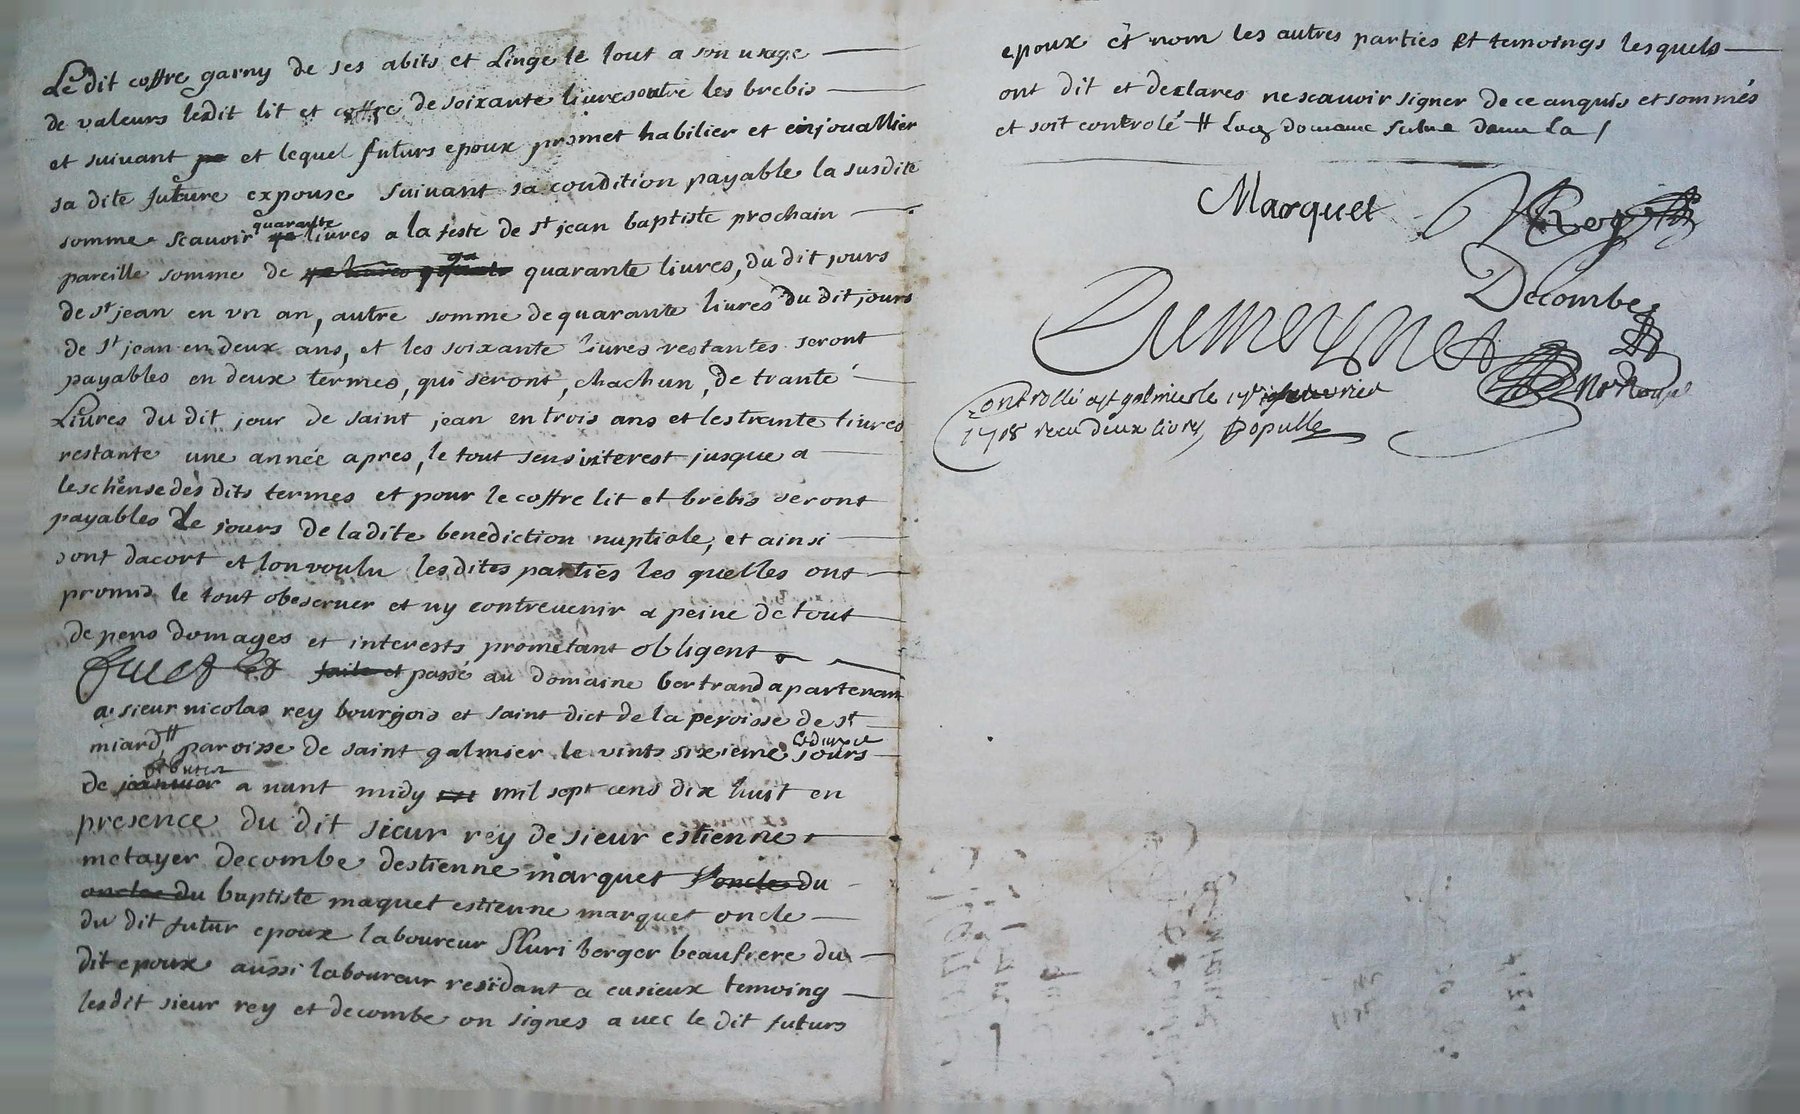 Ledit coffre garny de ses abits et Linge le tout a son usage
de valeurs ledit lit et coffre de soixante livres outre les brebis
et suivant et lequel futurs epoux promet habilier et enjouallier
sa dite future expouse suivant sa condition payable la susdite
somme scauoir quarante livres a la feste de st jean baptiste prochain
pareille somme de quarante livres, du dit jours
de st jean en vn an, autre somme de quarante livres du dit jours
de st jean en deux ans, et les soixante livres restantes seront
payables en deux termes, qui seront, chachun, de trante
Livres du dit jour de saint jean en trois ans et les trante livres
restante une année apres, le tout sens interest jusque a
leschense des dits termes et pour le coffre lit et brebis seront
payables le jours de ladite benediction nuptiale, et ainsi
sont dacort et lon voulu lesdites parties les quelles ont
promis le tout obeseruer et ny contreuenir a peine de tout
depens domages et interests prometant obligent
faite et passé au domaine bertrand apartenant
a sieur nicolas rey bourgois et saint dict de la peroisse de st
miard, paroisse de saint galmier le vints sixieme jours
de januier a nant midy mil sept cens dix huit en
presence du dit sieur rey de sieur estienne
metayer decombe destienne marquet l'oncle du
oncles du baptiste maquet estienne marquet oncle
du dit futur epoux laboureur fluri berger beaufrere du
dit epoux aussi laboureur residant a cusieux temoing
lesdit sieur rey et decombe on signes auec le dit futurs
epoux et nom les autres parties et temoings lesquels
ont dit et declares ne scauoir signer de ce anquis et sommés
et soit controlé
Marquet Rey
Decombe
Dumoynet
Controllé a st galmier le
1718 recu deux livres Populle